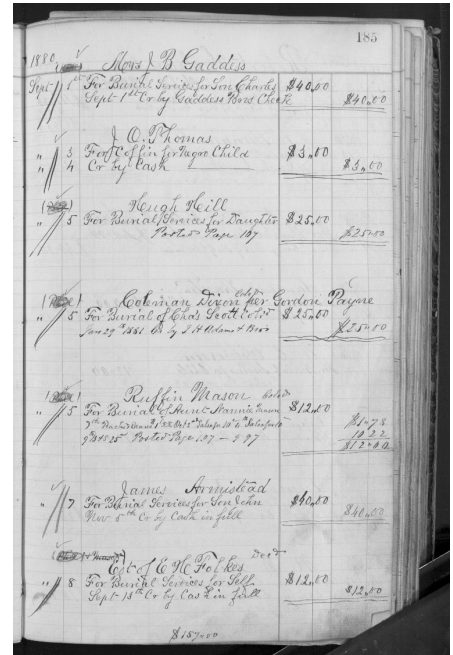 185
1880 Mrs J B Gaddess
Sept 1st For Burial Services for Son Charles $40.00
Sept 1st Cr by Gaddess Bros Check $40.00
J. O. Thomas
" 3 For Coffin for Negro Child $3.00
" 4 Cr by Cash $3.00
Hugh Hill
" 5 For Burial Services for Daughter $25.00
Posted Page 107 $25.00
Coleman Dixon Cold per Gordon Payne
" 5 For Burial of Chas Scott Cold $25.00
Jan 29th 1881 Cr by J H Adams & Bros $25.00
Ruffin Mason Cold
" 5 For Burial of Aunt $12.00
$1.78
10.22
Posted Page 107 $12.00
James Armistead
" 7 For Burial Services for Son John $40.00
Nov 5th Cr by Cash in full $40.00
Est of E H Folkes Decd
" 8 For Burial Services for Self $12.00
Sept 15th Cr by Cash in full $12.00
$157.00